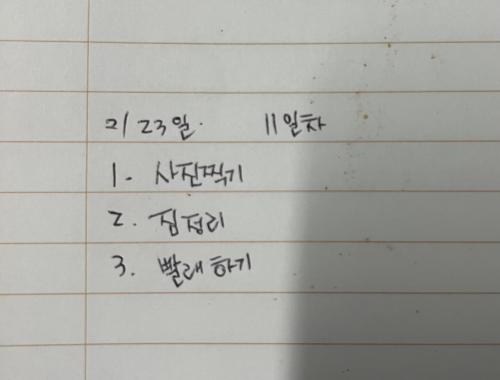 2/23일. 11일차
1. 사진찍기
2. 짐정리
3. 빨래하기